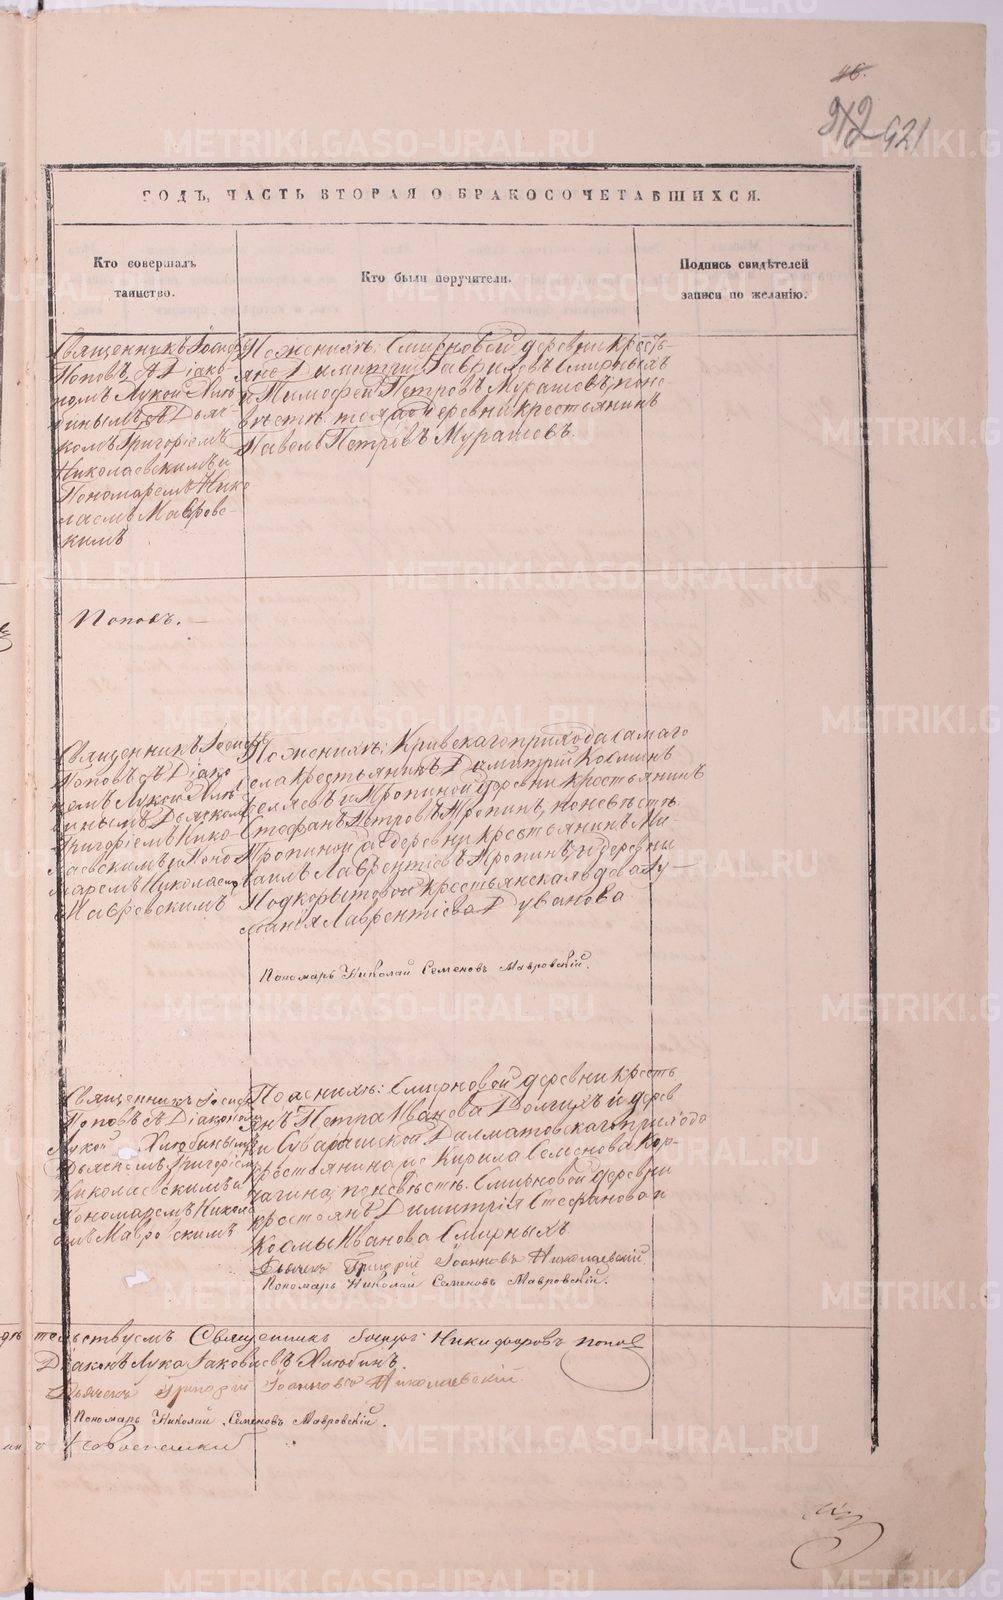 46.
312 421
ГОДЪ, ЧАСТЬ ВТОРАЯ О БРАКОСОЧЕТАВШИХСЯ.
Кто совершалъ
таинство.
Кто были поручители.
Подпись свидѣтелей
записи по желанію.
Священникъ Іосифъ
Поповъ съ Діако-
номъ Лукой Хлю-
бинымъ, Дьяч-
комъ Григоріемъ
Николаевскимъ и
Пономаремъ Нико-
лаемъ Мавровс-
кимъ
По женихѣ: Смирновой деревни кресть-
яне Димитрій Гавриловъ Смирныхъ
и Тимофей Петровъ Мурашовъ, по не-
вѣстѣ: той же деревни крестьянинъ
Павелъ Петровъ Мурашевъ.
Поповъ.
Священникъ Іосифъ
Поповъ съ Діако
номъ Лукой Хлю
бинымъ Дьячкомъ
Григоріемъ Нико-
лаевскимъ и Поно
маремъ Николаемъ
Мавровскимъ
По женихѣ: Кривскаго прихода самаго
села крестьянинъ Димитрій Косминъ
Бѣляевъ и Тропиной деревни крестьянинъ
Стефанъ Петровъ Тропинъ, по невѣстѣ
Тропиной деревни крестьянинъ Ми-
хаилъ Лаврентіевъ Тропинъ, и деревни
Подкорытовой крестьянская вдова Лу-
Лаврентіева Дуванова
Пономарь Николай Семеновъ Мавровскій.
Священникъ Іосифъ
Поповъ съ Діакономъ
Лукой Хлюбинымъ
Дьячкомъ Григоріемъ
Николаевскимъ и
Пономаремъ Никола
емъ Мавровскимъ
По женихѣ: Смирновой деревни кресть
янъ Петра Иванова Долгихъ и дерев
ни Суваришской Далматовскаго прихода
крестьянина Кирила Семенова Кор-
чагина; по невѣстѣ: Смирновой деревни
крестьянъ Димитрія Стефанова и
Космы Иванова Смирныхъ
Дьячекъ Григорій Іоанновъ Николаевскій
Пономарь Николай Семеновъ Мавровскій.
тельствуемъ Священникъ Іосифъ Никифоровъ Поповъ
Діаконъ Лука Іаковлевъ Хлюбинъ.
Дьячекъ Григорій Іоанновъ Николаевскій
Пономарь Николай Семеновъ Мавровскій.
METRIKI.GASO-URAL.RU